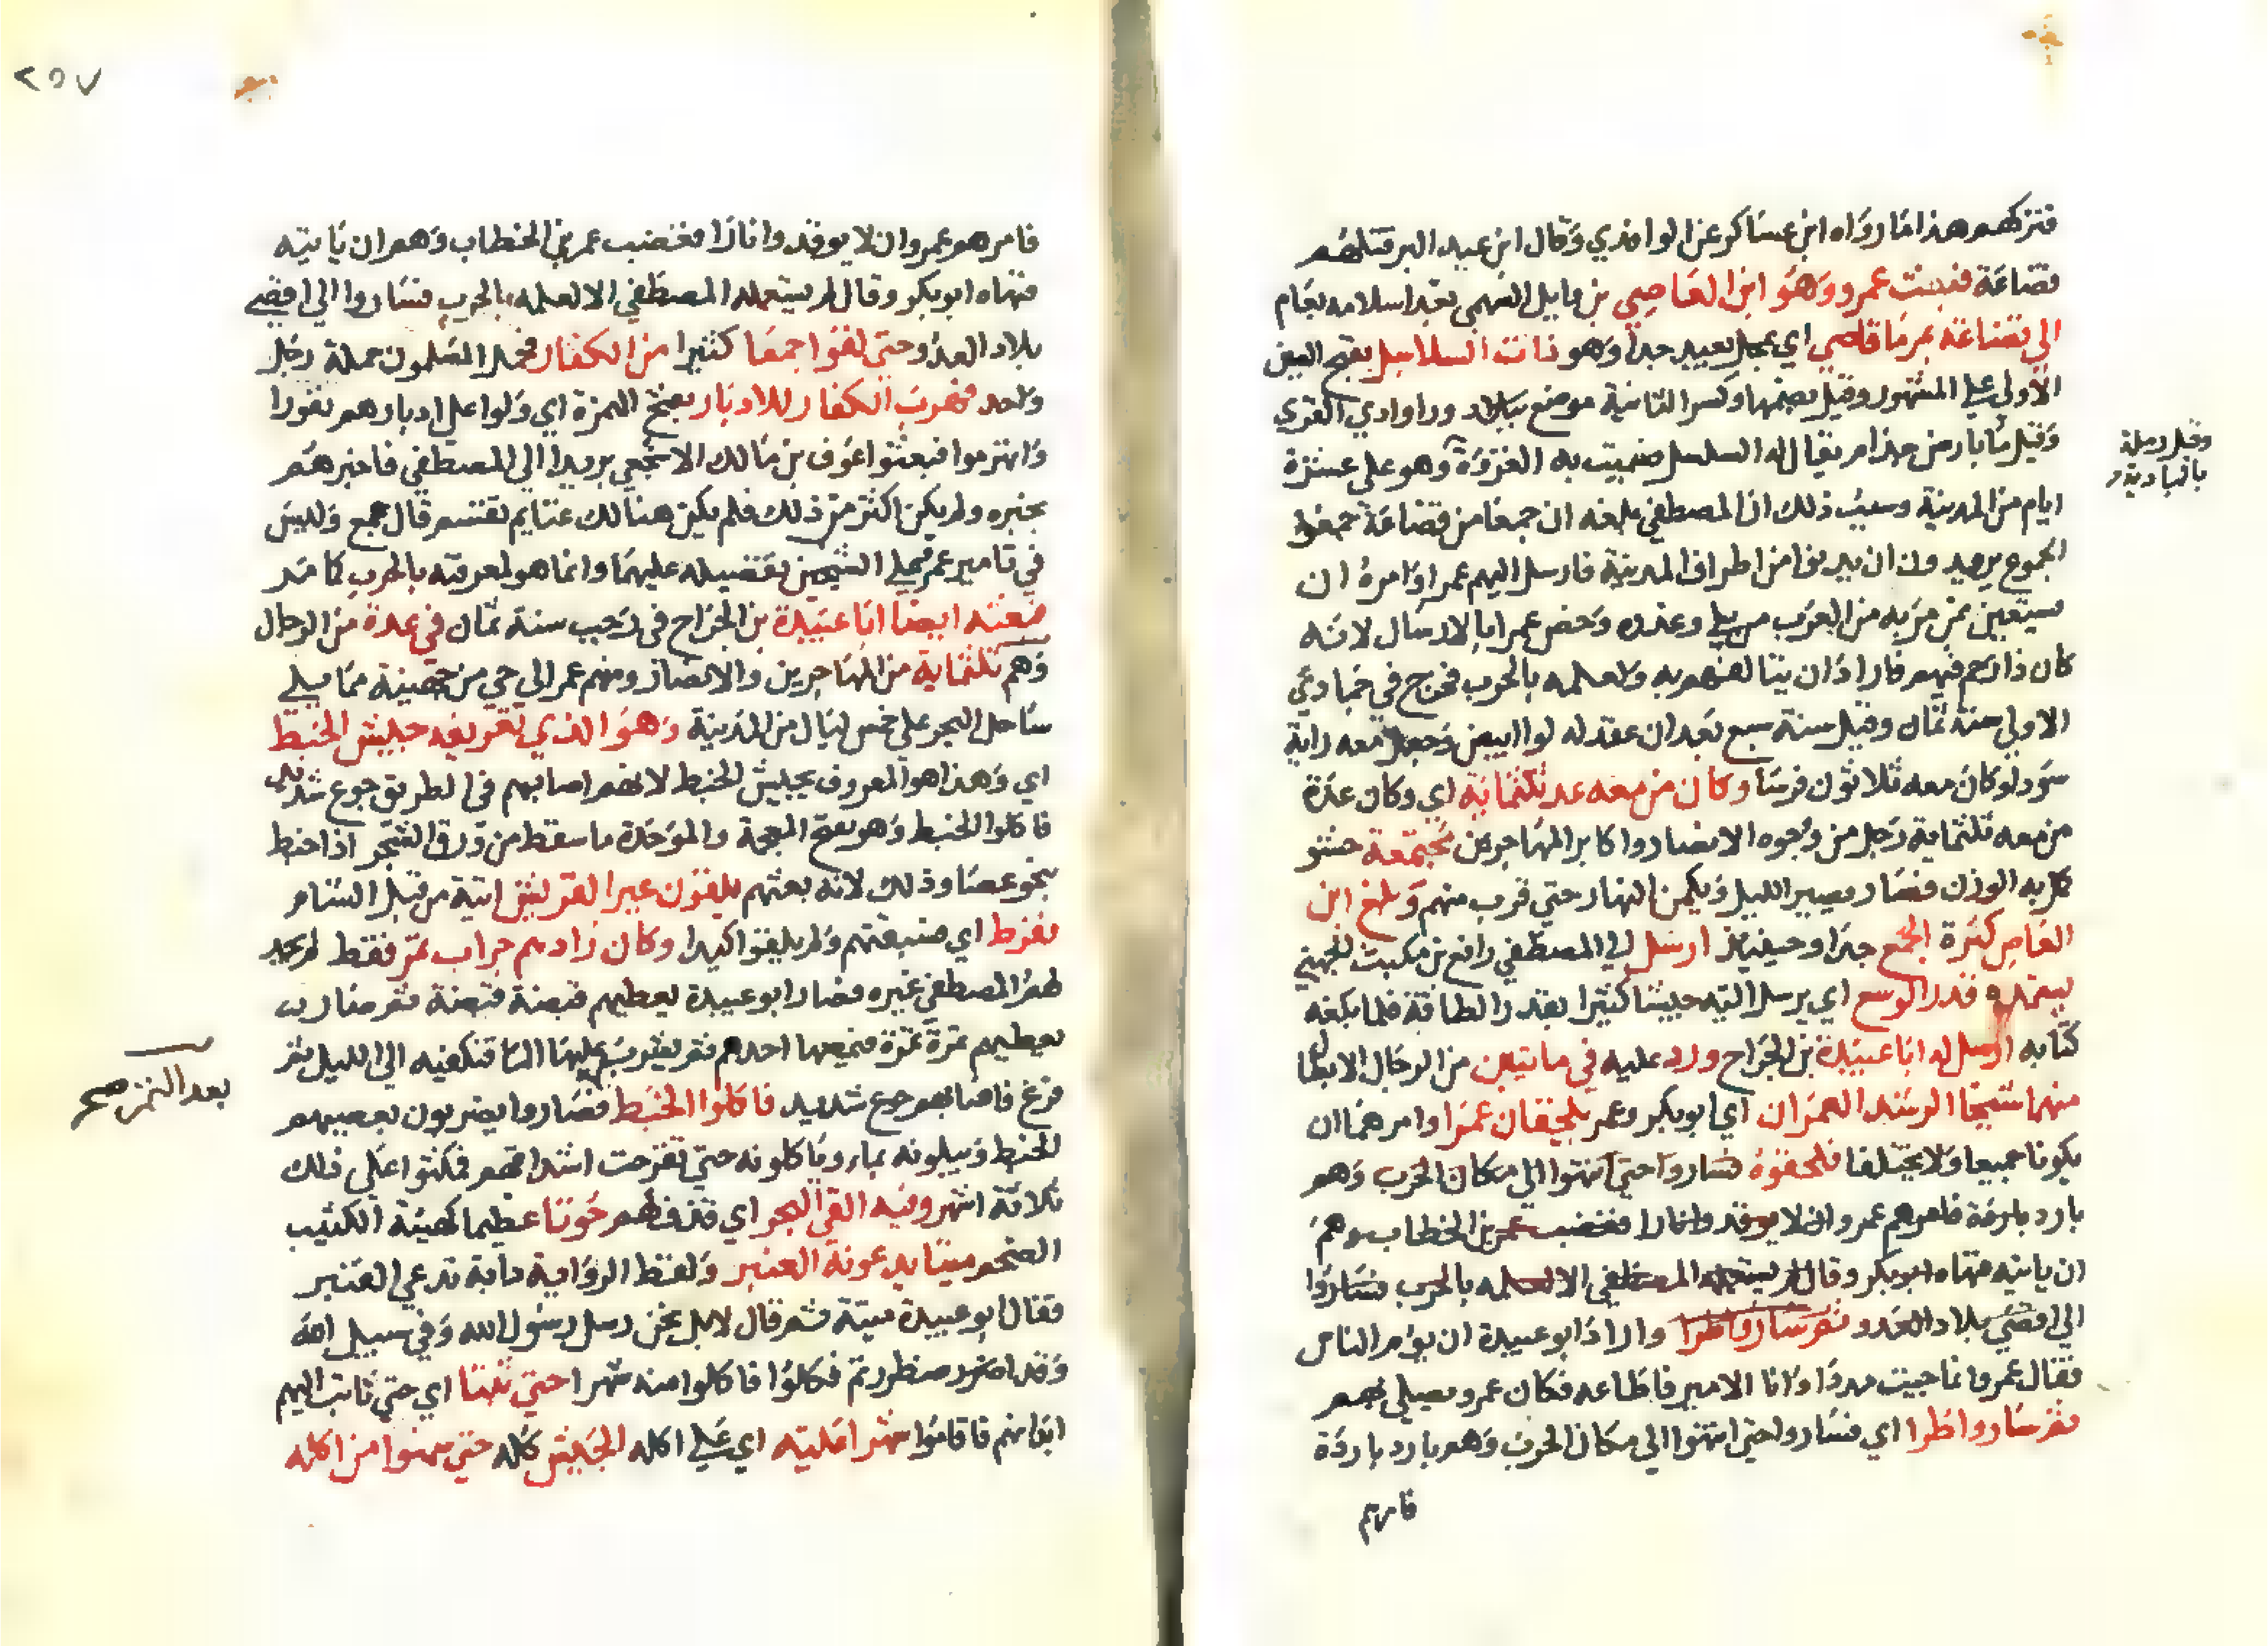 فتركهم هذا ما رواه ابن عساكر عن الواقدي وقال ابن عبد البر قتلهم
قضاعة فبعث عمرو وهو ابن العاصي بن وايل السهمي بعد اسلامه بعام
الي قضاعة بمرمي قاصي اي بمحل بعيد جدا وهو ذات السلاسل بفتح السين
الاولي علي المشهور وقيل بضمها وكسر الثانية موضع ببلاد ورا وادي القري
وقيل ما بارض جذام يقال له السلسل سميت به الغزوة وهو علي عشرة
وقيل رملة
بالبادية
ايام من المدينة وسبب ذلك ان المصطفي بلغه ان جمعا من قضاعة جمعوا
الجموع يريدون ان يدنوا من اطراف المدينة فارسل اليهم عمرا وامره ان
يستعين بمن مر به من العرب من بلي وعذره وخص عمرا بالارسال لانه
كان ذا رحم فيهم فاراد ان يتالفهم به ولعلمه بالحرب فخرج في جمادي
الاولي سنة ثمان وقيل سنة سبع بعد ان عقد له لوا ابيض وجعل معه راية
سودا وكان معه ثلاثون فرسا وكان من معه عد ثلثماية اي وكان عدة
من معه ثلثماية رجل من وجوه الانصار واكابر المهاجرين مجتمعة حشو
كمل به الوزن فصار يسير الليل ويكمن النهار حتي قرب منهم وبلغ ابن
العاص كثرة الجمع جدا وحينيذ ارسل الي المصطفي رافع بن مكيث الجهني
يستمده قدر الوسع اي يرسل اليه جيشا كثيرا بقدر الطاقة فلما بلغه
كتابه ارسل له ابا عبيدة بن الجراح ورد عليه في مايتين من الرجال الابطال
منهما شيخا الرشد العمران اي ابو بكر وعمر يلحقان عمرا وامرهما ان
يكونا جميعا ولا يختلفا فلحقوه فساروا حتي انتهوا الي مكان الحرب وهو
بارد بامرة فامرهم عمرو ان لا يوقدوا نارا فغضب عمر بن الخطاب وهم
ان ياتيه فنهاه ابو بكر وقال لم يستعمله المصطفي الا لعلمه بالحرب فساروا
الي اقصي بلاد العدو ثم ساروا طرا واراد ابو عبيدة ان يوم الناس
فقال عمرو انما جيت مددا وانا الامير فاطاعه فكان عمرو يصلي بهم
ثم ساروا طرا اي فساروا حتي انتهوا الي مكان الحرب وهو بارد باردة
فامرهم
٢٥٧
فامرهم عمرو ان لا يوقدوا نارا فغضب عمر بن الخطاب وهم ان ياتيه
فنهاه ابو بكر وقال لم يستعمله المصطفي الا لعلمه بالحرب فساروا الي اقصي
بلاد العدو حتي لقوا جمعا كثيرا من الكفار فحمل المسلمون حملة رجل
واحد فهرب الكفار للادبار بفتح الهمزة اي ولوا علي ادبارهم نفورا
وانهزموا فبعثوا عوف بن مالك الاشجعي بريدا الي المصطفي فاخبرهم
بخبره ولم يكن اكثر من ذلك فلم يكن هنالك غنايم تقتسم قال جمع وليس
في تامير عمرو علي الشيخين تفضيله عليهما وانما هو لمعرفته بالحرب كما مر
بعثه ايضا ابا عبيدة بن الجراح في رجب سنة ثمان في عدة من الرجال
وهم ثلثماية من المهاجرين والانصار ومنهم عمر الي حي من جهينة مما يلي
ساحل البحر علي خمس ليال من المدينة وهو الذي تعريفه جيش الخبط
اي وهذا هو المعروف بجيش الخبط لانهم اصابهم في الطريق جوع شديد
فاكلوا الخبط وهو بفتح المعجمة والموحدة ما سقط من ورق الشجر اذا خبط
بنحو عصا وذلك لانه بعثهم يلقون عيرا لقريش اتية من قبل الشام
بفرط اي سبقتهم ولم يلقوا كيدا وكان زادهم جراب تمر فقط لم يجد
لهم المصطفي غيره فصار ابو عبيدة يعطيهم قبضة قبضة ثم صار
يعطيهم تمرة تمرة فيمصها احدهم ثم يشرب عليها الما فتكفيه الي الليل ثم
فرغ فاصابهم جوع شديد فاكلوا الخبط فصاروا يضربون بعصيهم
بعد التمر صح
الخبط ويبلونه بماء وياكلونه حتي تقرحت اشداقهم فمكثوا علي ذلك
ثلاثة اشهر وفيه القي البحر اي قذف لهم حوتا عظيما كهيئة الكثيب
الضخم ميتا يدعونه العنبر ولفظ الرواية دابة تدعي العنبر
فقال ابو عبيدة ميتة ثم قال لا بل نحن رسل رسول الله وفي سبيل الله
وقد اضطررتم فكلوا فاكلوا منه شهرا حتي ثبنا اي حتي ثابت اليهم
ابدانهم فاقاموا شهرا عليه اي علي اكله الجيش كله حتي سمنوا من اكله